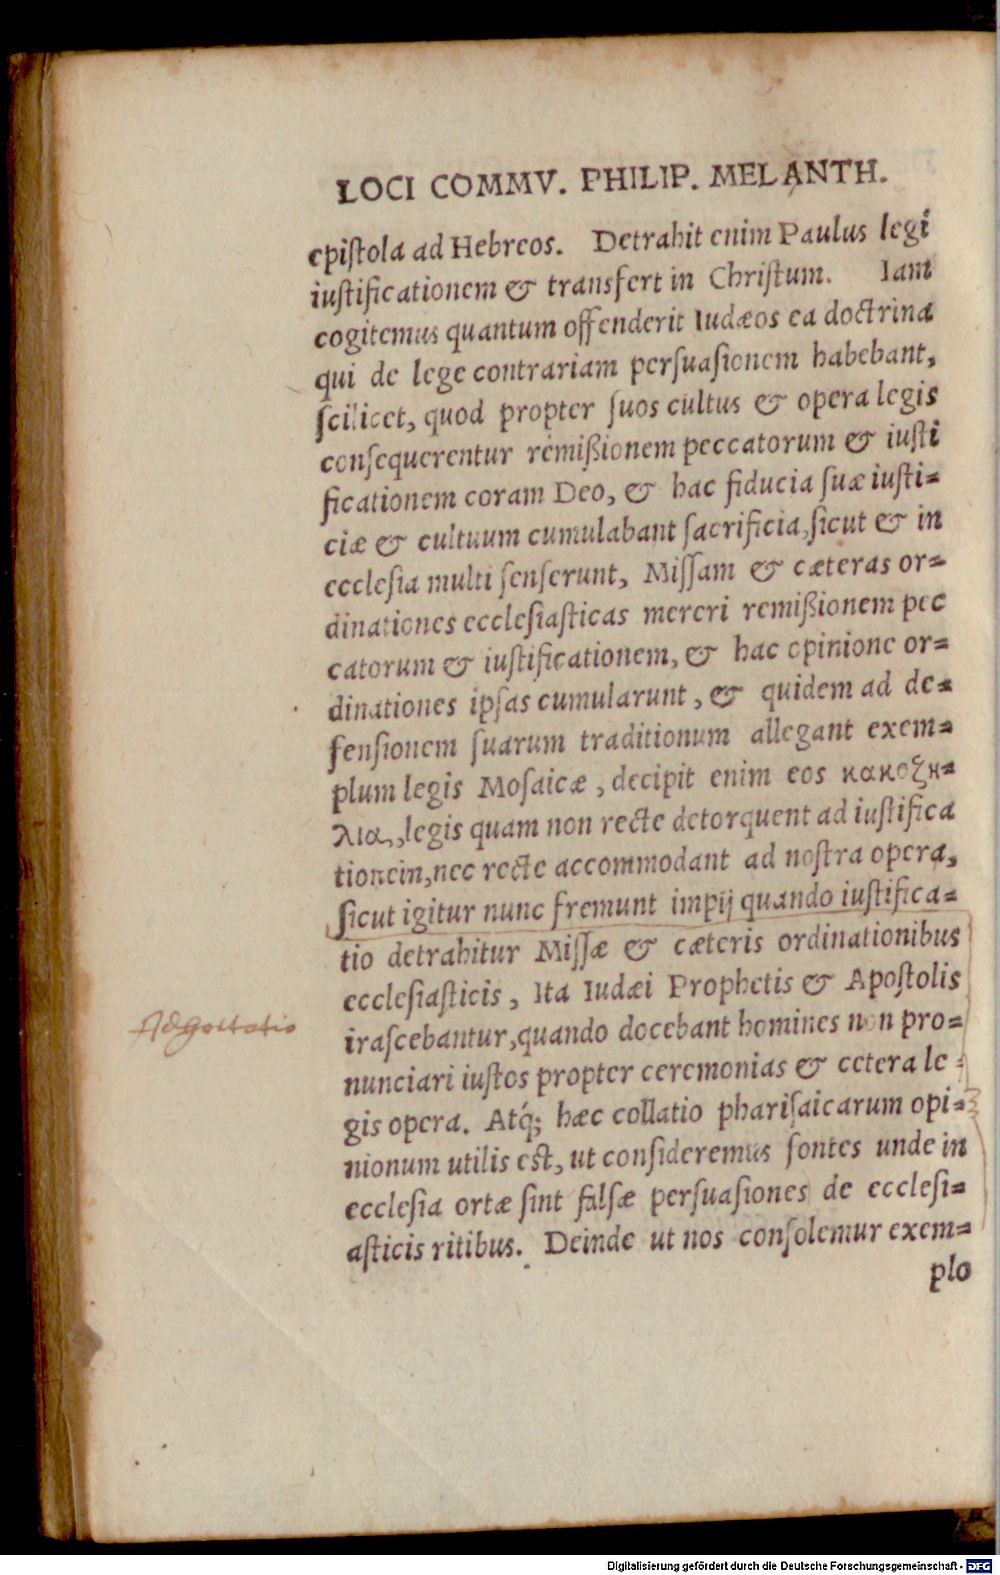 LOCI COMMV. PHILIP. MELANTH.
epiſtola ad Hebreos. Detrahit enim Paulus legi
iuſtificationem & transfert in Chriſtum. Iam
cogitemus quantum offenderit Iudæos ea doctrina
qui de lege contrariam perſuaſionem habebant,
ſcilicet, quod propter ſuos cultus & opera legis
conſequerentur remißionem peccatorum & iuſti
ficationem coram Deo, & hac fiducia ſuæ iuſti=
ciæ & cultuum cumulabant ſacrificia, ſicut & in
eccleſia multi ſenſerunt, Miſſam & cæteras or=
dinationes eccleſiaſticas mereri remißionem pec
catorum & iuſtificationem, & hac opinione or=
dinationes ipſas cumularunt, & quidem ad de=
fenſionem ſuarum traditionum allegant exem=
plum legis Moſaicæ, decipit enim eos κακοζη=
λια, legis quam non recte detorquent ad iuſtifica
tionem, nec recte accommodant ad noſtra opera,
ſicut igitur nunc fremunt impij quando iuſtifica=
tio detrahitur Miſſæ & cæteris ordinationibus
eccleſiaſticis, Ita Iudæi Prophetis & Apoſtolis
iraſcebantur, quando docebant homines non pro=
nunciari iuſtos propter ceremonias & cetera le=
gis opera. Atq́; hæc collatio phariſaicarum opi=
nionum utilis eſt, ut conſideremus fontes unde in
eccleſia ortæ ſint falſæ perſuaſiones de eccleſi=
aſticis ritibus. Deinde ut nos conſolemur exem=
plo
Digitalisierung gefördert durch die Deutsche Forschungsgemeinschaft - DFG